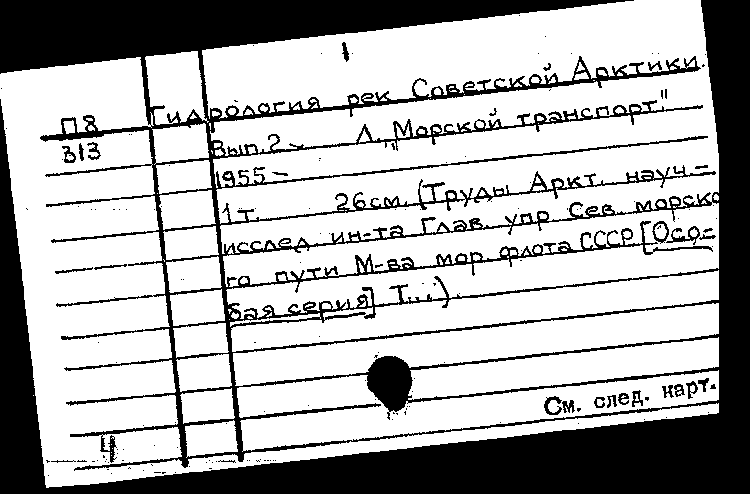 1
П8 Гидрология рек Советской Арктики.
313 Вып.2 - Л., „Морской транспорт"
1955 -
1т. 26см. (Труды Аркт. науч.-
исслед. ин-та Глав. упр Сев. морско
го пути М-ва мор. флота СССР [Осо-
бая серия] Т...).
См. след. карт.
4